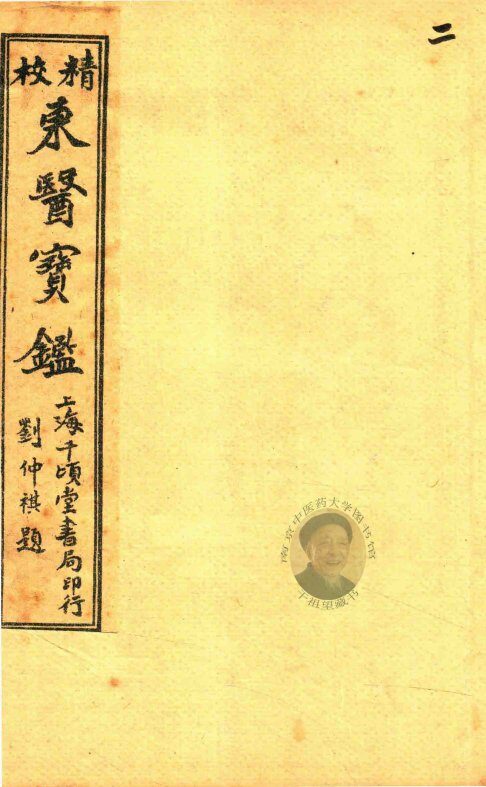 二
精校
東醫寶鑑
上海千頃堂書局印行
劉仲祺題
南京中医药大学图书馆
干祖望藏书